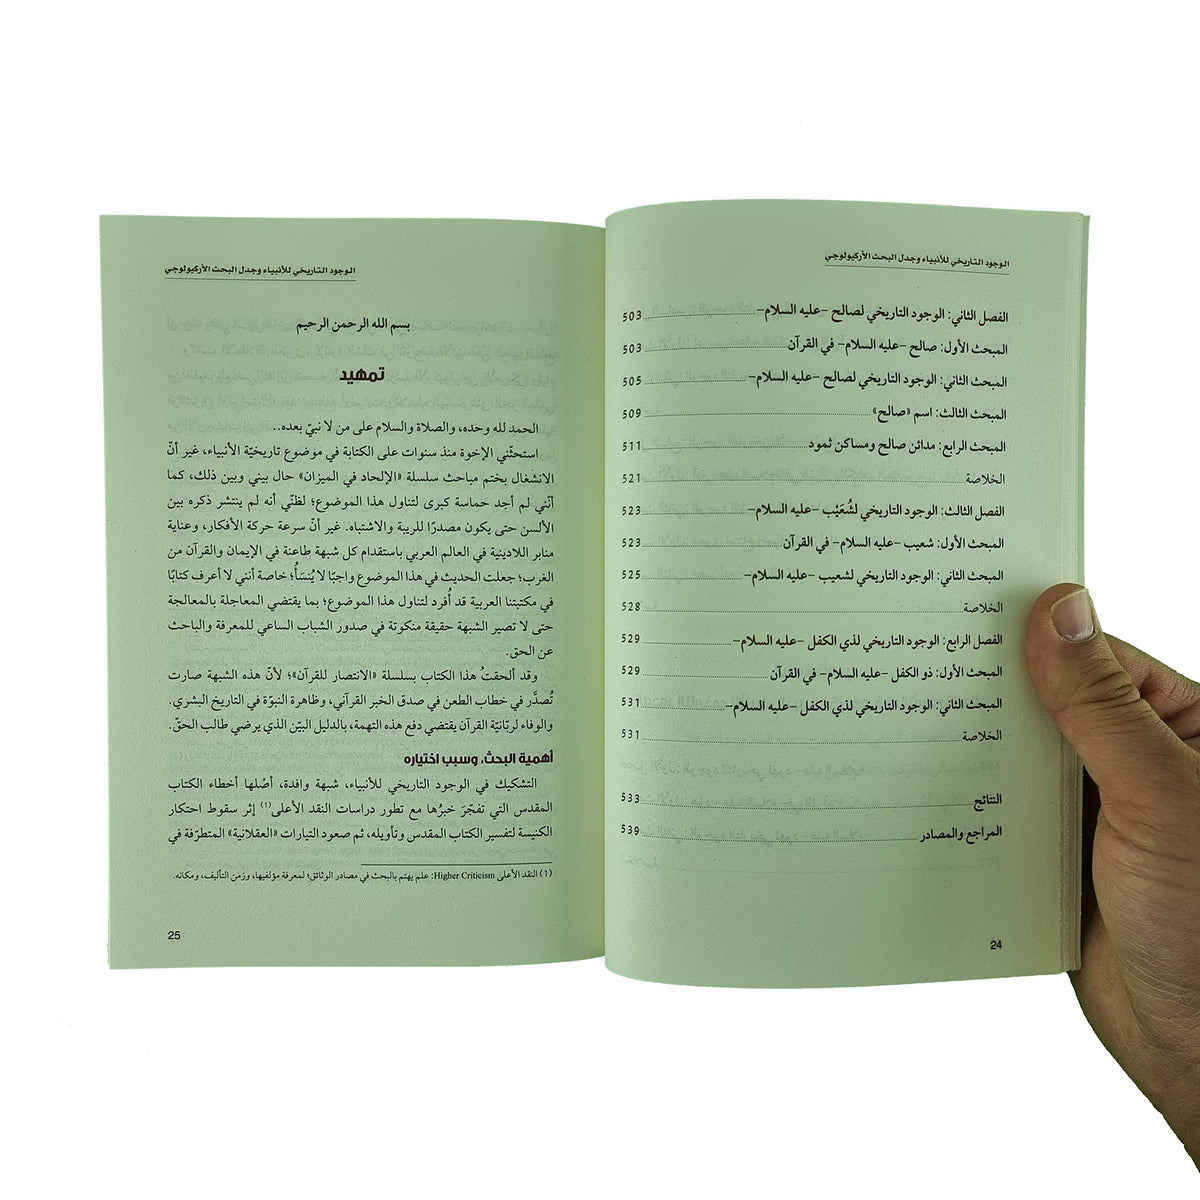 الوجود التاريخي للأنبياء وجدل البحث الأركيولوجي
الفصل الثاني: الوجود التاريخي لصالح –عليه السلام– 503
المبحث الأول: صالح –عليه السلام– في القرآن 503
المبحث الثاني: الوجود التاريخي لصالح –عليه السلام– 505
المبحث الثالث: اسم «صالح» 509
المبحث الرابع: مدائن صالح ومساكن ثمود 511
الخلاصة 521
الفصل الثالث: الوجود التاريخي لشُعَيْب –عليه السلام– 523
المبحث الأول: شعيب –عليه السلام– في القرآن 523
المبحث الثاني: الوجود التاريخي لشعيب –عليه السلام– 525
الخلاصة 528
الفصل الرابع: الوجود التاريخي لذي الكفل –عليه السلام– 529
المبحث الأول: ذو الكفل –عليه السلام– في القرآن 529
المبحث الثاني: الوجود التاريخي لذي الكفل –عليه السلام– 531
الخلاصة 531
النتائج 533
المراجع والمصادر 539
24
الوجود التاريخي للأنبياء وجدل البحث الأركيولوجي
بسم الله الرحمن الرحيم
تمهيد
الحمد لله وحده، والصلاة والسلام على من لا نبيّ بعده..
استحثّني الإخوة منذ سنوات على الكتابة في موضوع تاريخيّة الأنبياء، غير أنّ
الانشغال بختم مباحث سلسلة «الإلحاد في الميزان» حال بيني وبين ذلك، كما
أنّني لم أجد حماسة كبرى لتناول هذا الموضوع؛ لظنّي أنه لم ينتشر ذكره بين
الألسن حتى يكون مصدرًا للريبة والاشتباه. غير أنّ سرعة حركة الأفكار، وعناية
منابر اللادينية في العالم العربي باستقدام كل شبهة طاعنة في الإيمان والقرآن من
الغرب؛ جعلت الحديث في هذا الموضوع واجبًا لا يُنسَأُ؛ خاصة أنني لا أعرف كتابًا
في مكتبتنا العربية قد أُفرد لتناول هذا الموضوع؛ بما يقتضي المعاجلة بالمعالجة
حتى لا تصير الشبهة حقيقة منكوتة في صدور الشباب الساعي للمعرفة والباحث
عن الحق.
وقد ألحقتُ هذا الكتاب بسلسلة «الانتصار للقرآن»؛ لأنّ هذه الشبهة صارت
تُصدَّر في خطاب الطعن في صدق الخبر القرآني، وظاهرة النبوّة في التاريخ البشري.
والوفاء لربّانيّة القرآن يقتضي دفع هذه التهمة، بالدليل البيّن الذي يرضي طالب الحقّ.
أهمية البحث، وسبب اختياره
التشكيك في الوجود التاريخي للأنبياء، شبهة وافدة، أصْلها أخطاء الكتاب
المقدس التي تفجّرَ خبرُها مع تطور دراسات النقد الأعلى(1) إثر سقوط احتكار
الكنيسة لتفسير الكتاب المقدس وتأويله، ثم صعود التيارات «العقلانية» المتطرّفة في
(1) النقد الأعلى Higher Criticism: علم يهتم بالبحث في مصادر الوثائق؛ لمعرفة مؤلفيها، وزمن التأليف، ومكانه.
25